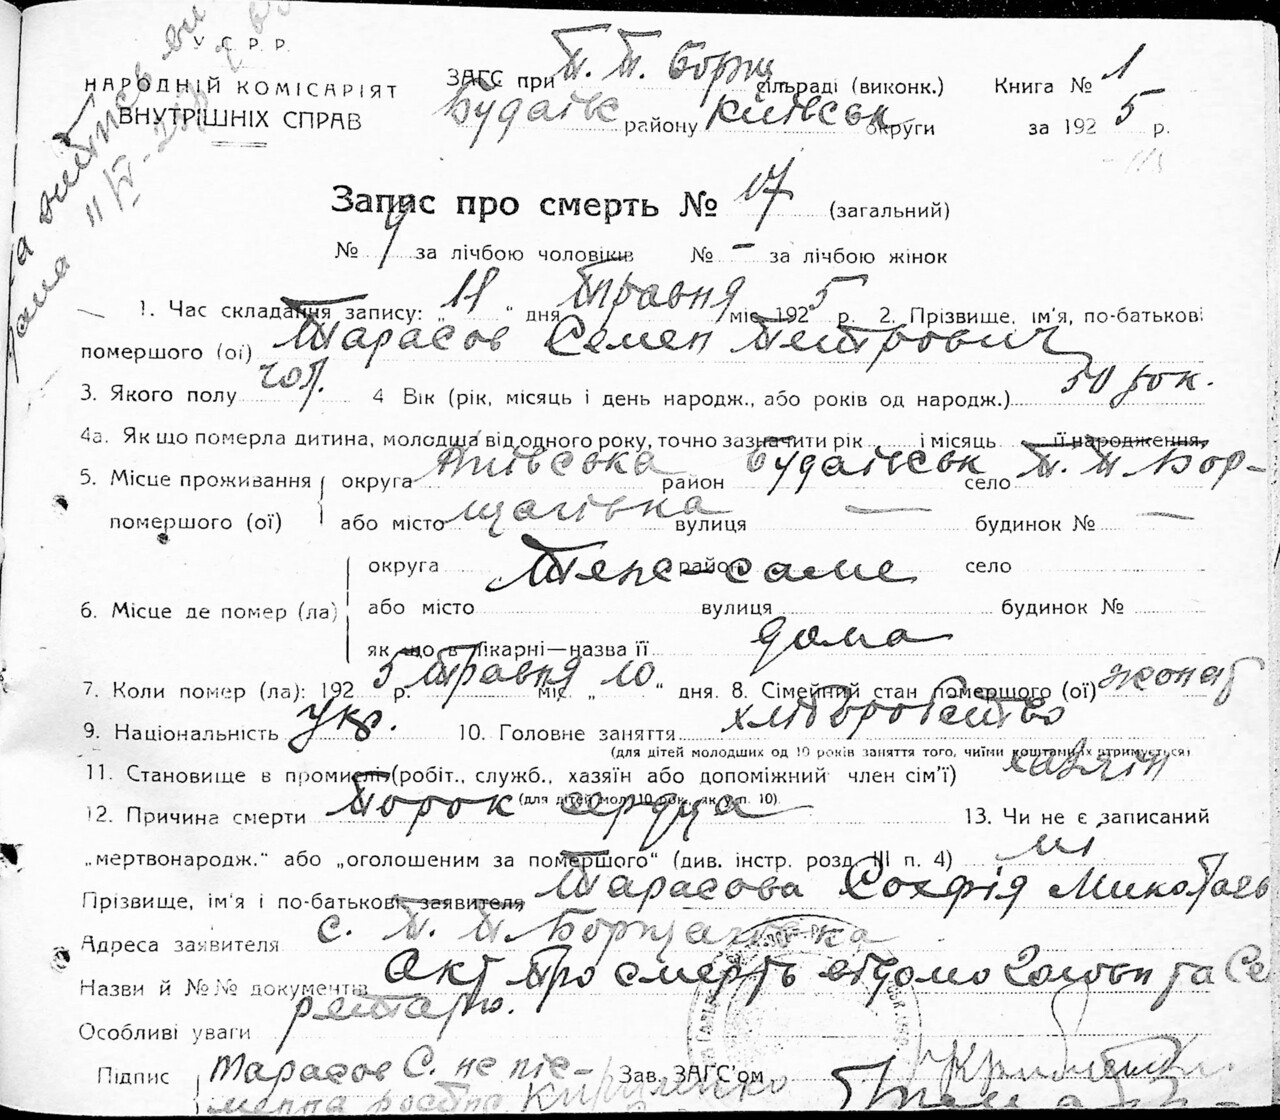 У.С.Р.Р.
НАРОДНІЙ КОМІСАРІЯТ
ВНУТРІШНІХ СПРАВ
ЗАГС при П. П. Борщ сільраді (виконк.) Книга № 1
Будаївс району Київськ округи за 1925 р.
Запис про смерть № 17 (загальний)
№ за лічбою чоловіків № - за лічбою жінок
1. Час складання запису: „11" дня Травня міс. 1925 р. 2. Прізвище, ім'я, по-батькові
помершого (ої) Тарасов Семен Петрович
3. Якого полу чол. 4 Вік (рік, місяць і день народж., або років од народж.) 50 рок.
4а. Як що померла дитина, молодша від одного року, точно зазначити рік і місяць її народження,
5. Місце проживання округа Київська район Будаївськ село П. П Бор-
помершого (ої) або місто щагівка вулиця — будинок № —
округа Теж-саме район село
6. Місце де помер (ла) або місто вулиця будинок №
як що в лікарні—назва її дома
7. Коли помер (ла): 1925 р. Травня міс. „10" дня. 8. Сімейний стан помершого (ої) жонат
9. Національність укр. 10. Головне заняття хліборобство
(для дітей молодших од 10 років заняття того, чиїми коштами їх отримується)
11. Становище в промислі (робіт., служб., хазяїн або допоміжний член сім'ї) хазяїн
(для дітей мол. 10 рок. як у п. 10)
12. Причина смерти Порок сердца 13. Чи не є записаний
„мертвонародж." або „оголошеним за помершого" (див. інстр. розд. III п. 4) ні
Прізвище, ім'я і по-батькові заявителя Тарасова Софія Миколаєв
Адреса заявителя с. П. П Борщагівка
Назви й №№ документів Акт про смерть відомо Голови та Сек
Особливі уваги ретарю.
Підпис Тарасов С. не піс- Зав. ЗАГС'ом
менна Кириленко